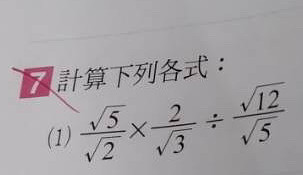 7 計算下列各式：
(1) √5/√2 × 2/√3 ÷ √12/√5